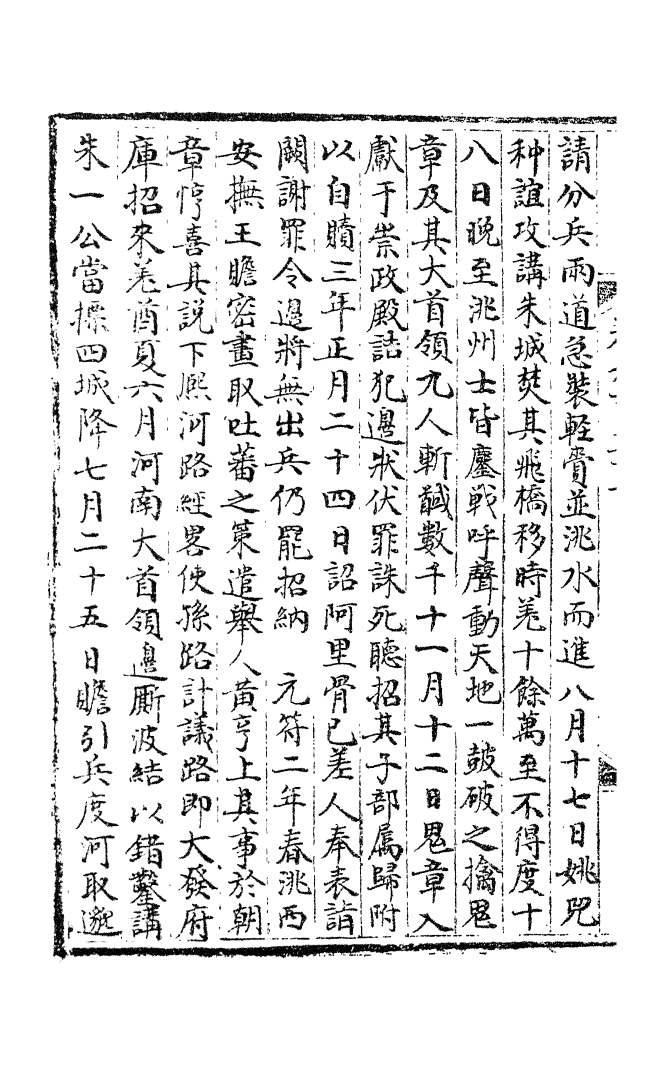 請分兵兩道急裝輕賫並洮水而進八月十七日姚兕
种誼攻講朱城焚其飛橋移時羌十餘萬至不得度十
八日晚至洮州士皆鏖戰呼聲動天地一鼓破之擒鬼
章及其大首領九人斬馘數千十一月十二日鬼章入
獻于崇政殿詰犯邊狀伏罪誅死聽招其子部属歸附
以自贖三年正月二十四日詔阿里骨已差人奉表詣
闕謝罪令邊將無出兵仍罷招納　元符二年春洮西
安撫王瞻密畫取吐蕃之策遣舉人黃亨上其事於朝
章惇喜其說下熈河路經畧使孫路計議路即大發府
庫招來羌酋夏六月河南大首領邊厮波結以錯鑿講
朱一公當摽四城降七月二十五日瞻引兵度河取邈